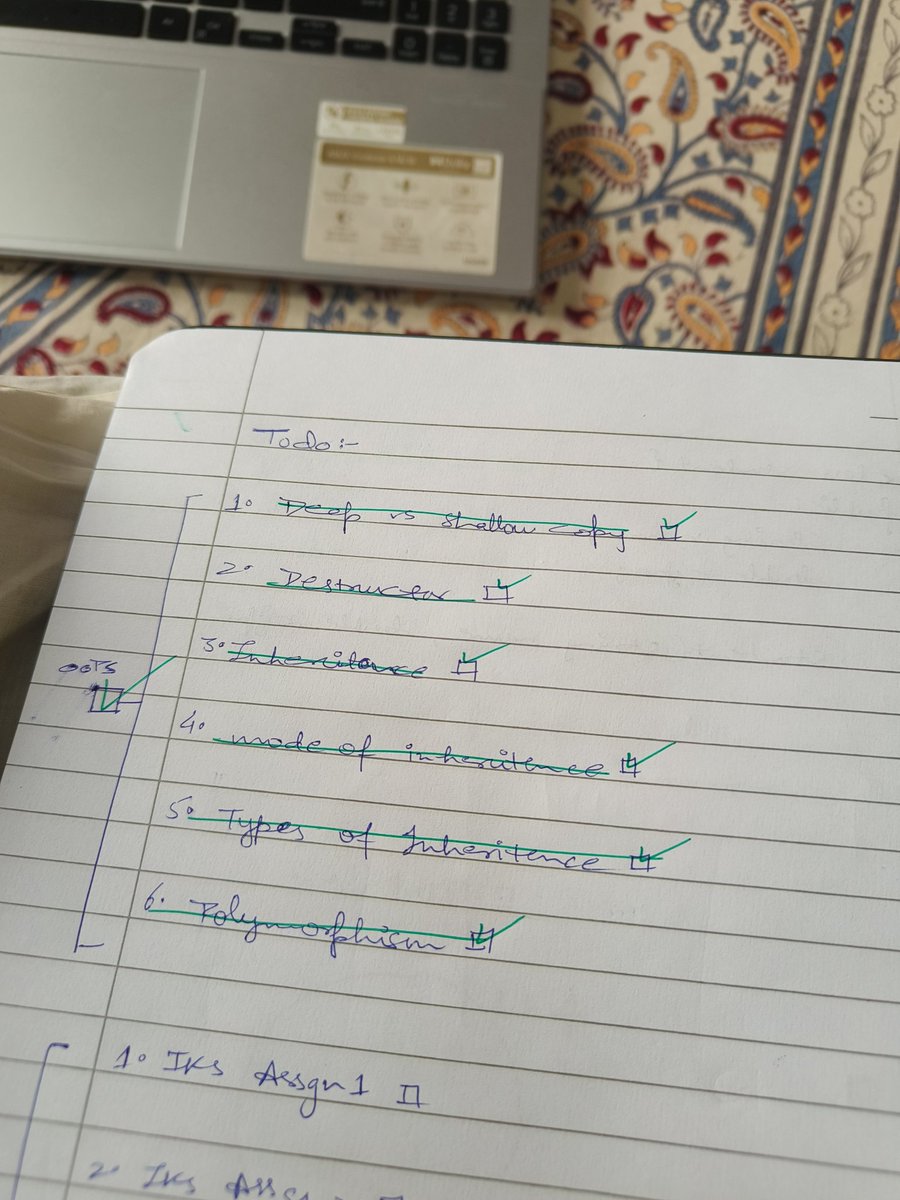 Todo:-
1. Deep vs shallow copy
2. Destructor
3. Inheritance
OOPS
4. mode of inheritence
5. Types of Inheritence
6. Polymorphism
1. IKS Assgn 1
2. IKS